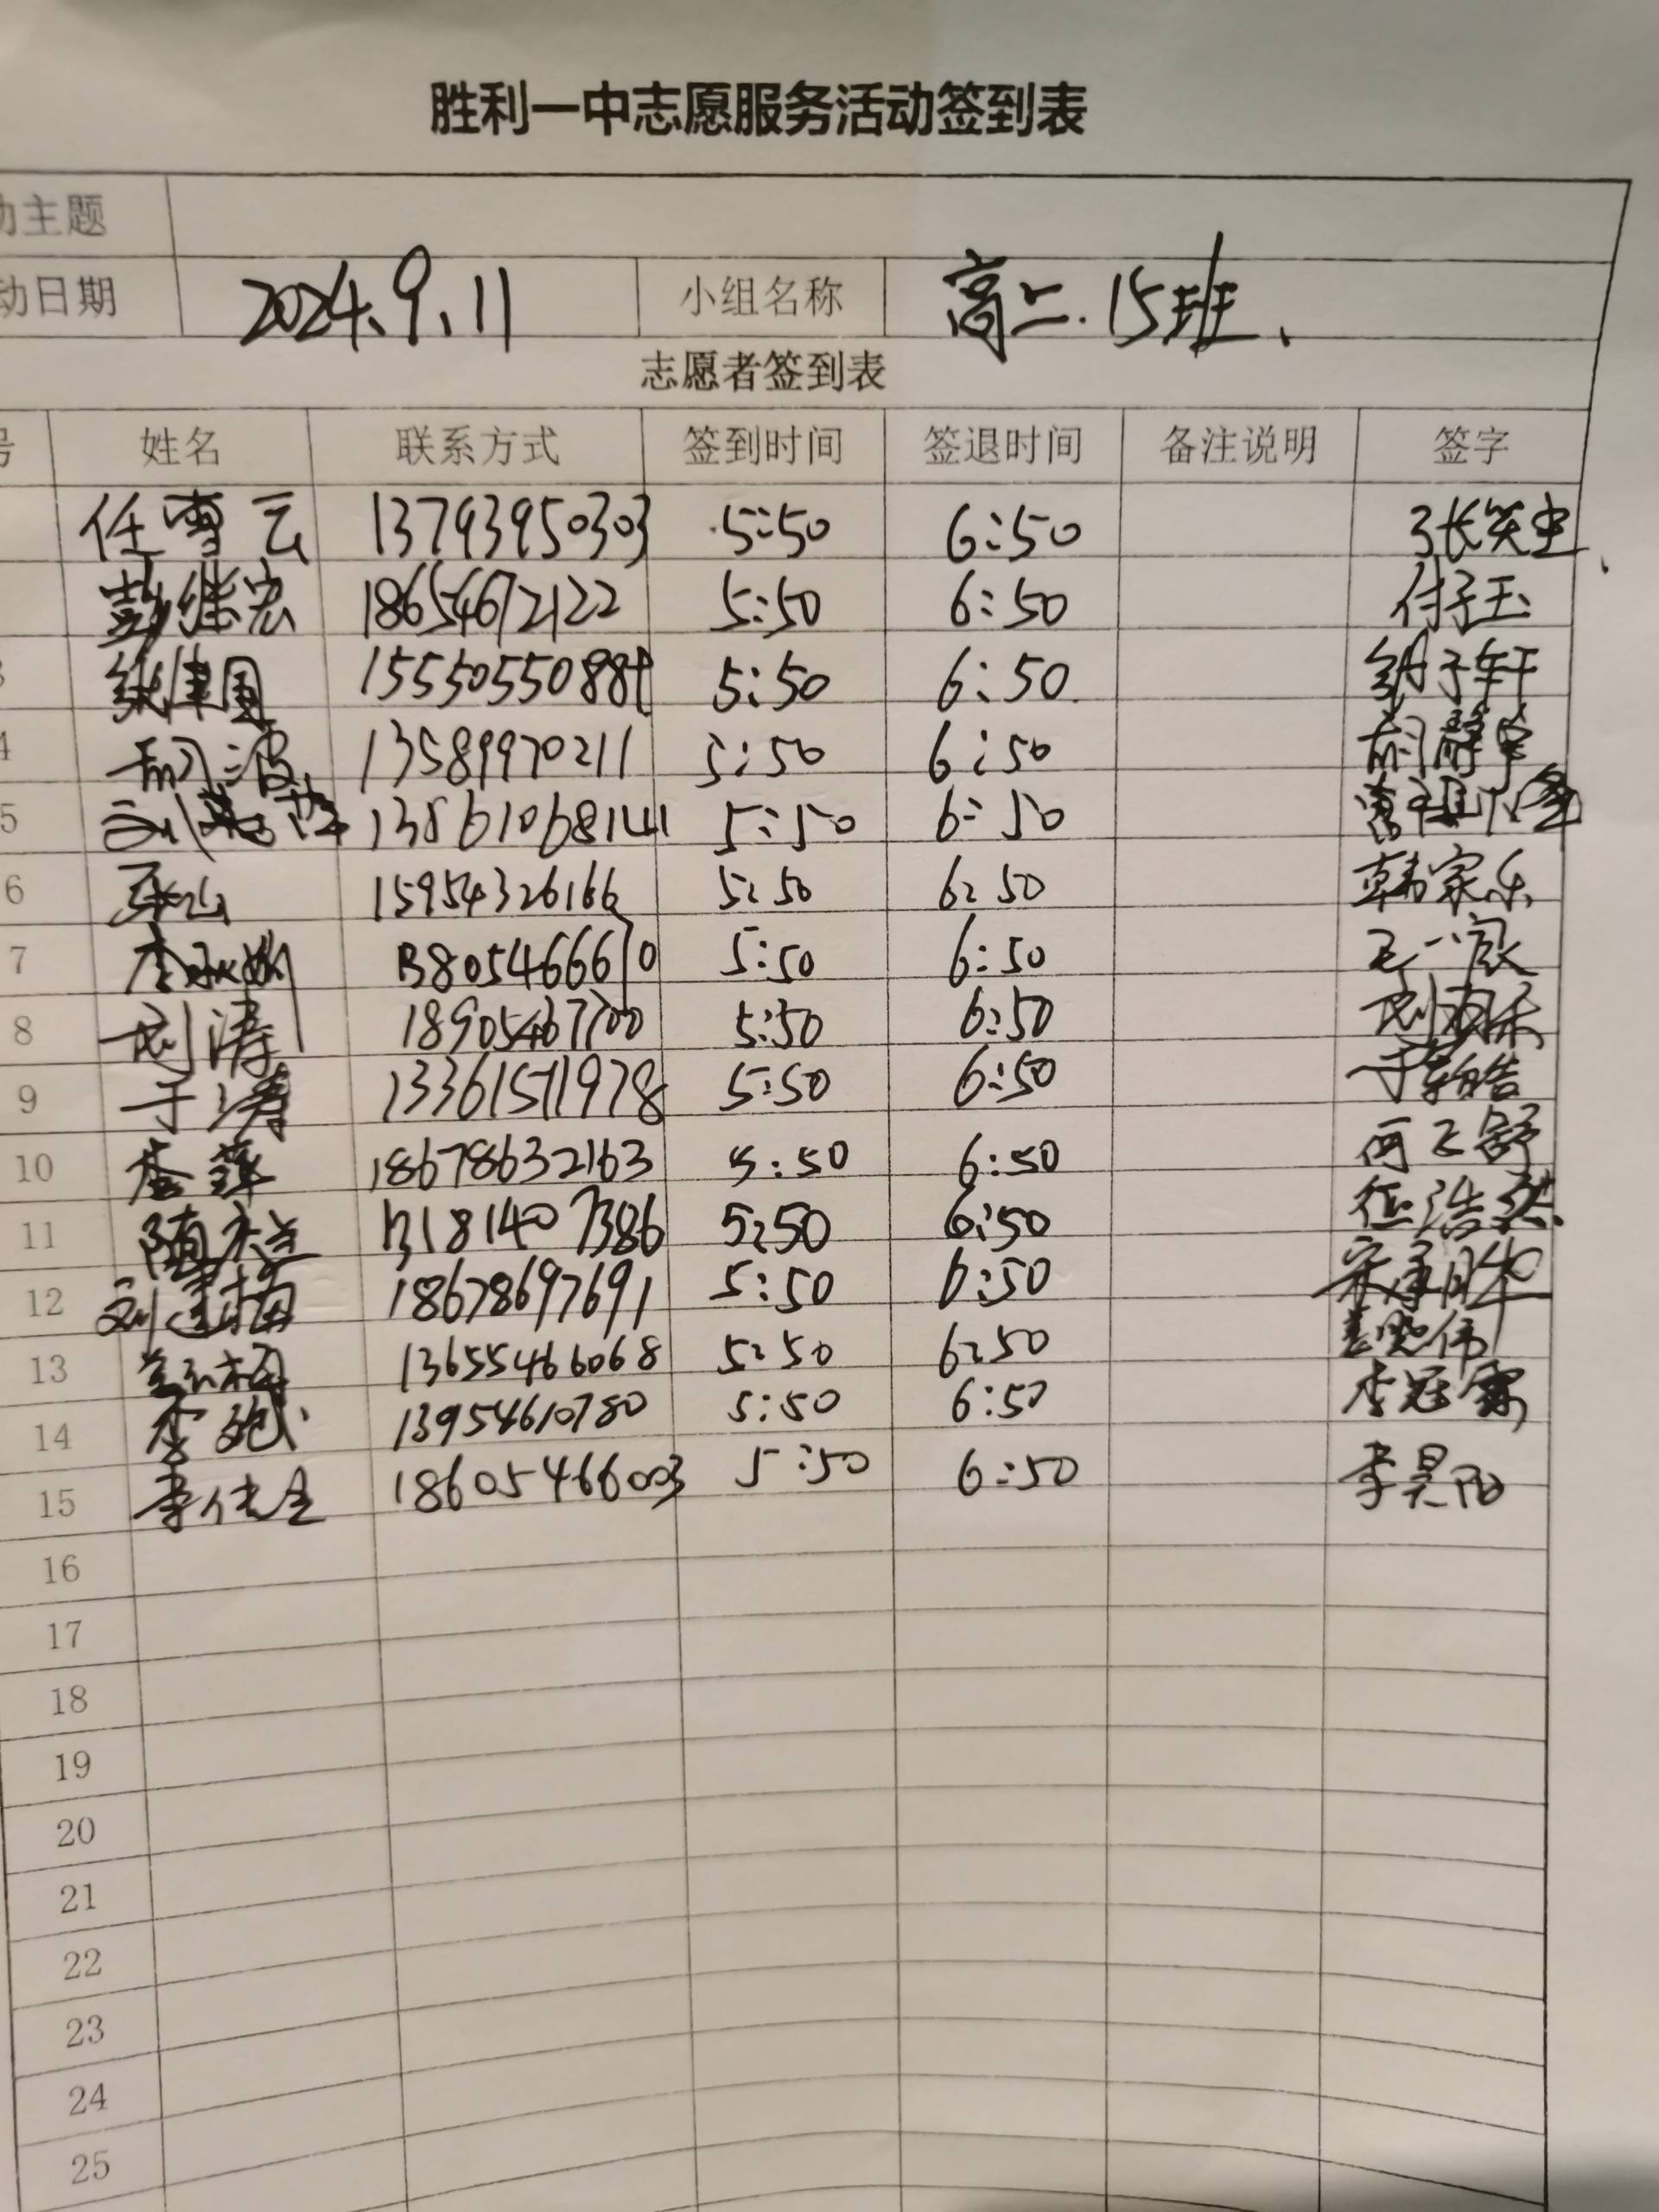 胜利一中志愿服务活动签到表
动主题
动日期 2024.9.11 小组名称 高二.15班.
志愿者签到表
号 姓名 联系方式 签到时间 签退时间 备注说明 签字
任雪云 13793950303 5:50 6:50 张笑尘
彭继宏 18654672122 5:50 6:50 付子玉
15550550884 5:50 6:50 子轩
4 波 13589970211 5:50 6:50 胡静宇
5 刘 13561068141 5:50 6:50
6 15954326166 5:50 6:50 韩家乐
7 李 13805466670 5:50 6:50 王一宸
8 刘涛 18905467700 5:50 6:50 刘雨禾
9 于涛 13361571978 5:50 6:50 于翰皓
10 李萍 18678632163 5:50 6:50
11 随 13181407386 5:50 6:50 任浩然
12 刘建梅 18678697691 5:50 6:50 宋
13 13655466068 5:50 6:50 姜熙伟
14 李 13954610780 5:50 6:50 李冠霖
15 李佳全 18605466003 5:50 6:50 李昊阳
16
17
18
19
20
21
22
23
24
25